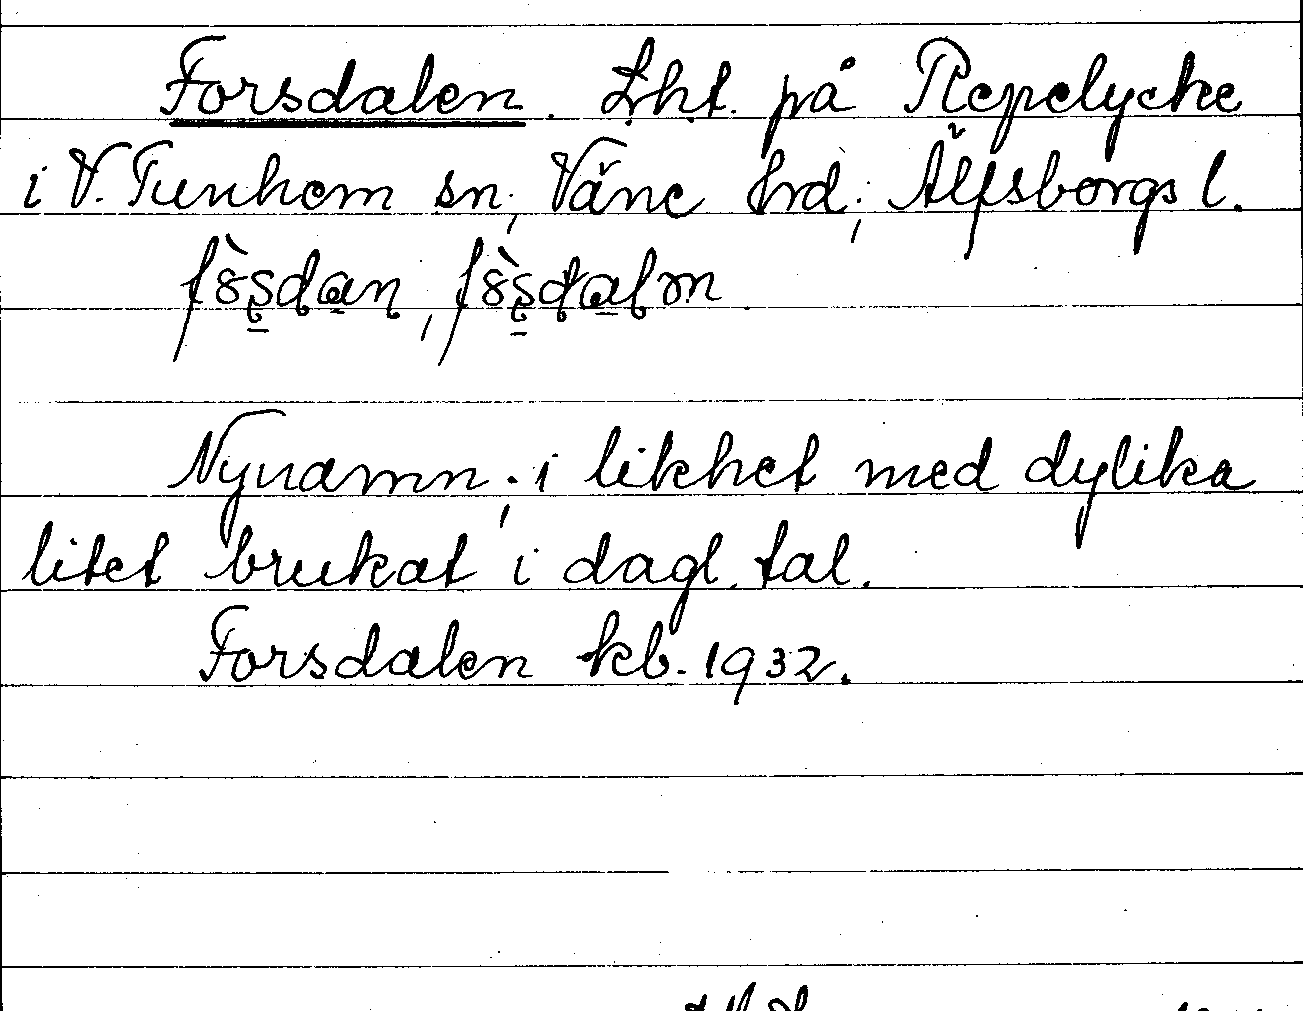 Forsdalen. Lht. på Repelycke
i V. Tunhem sn; Väne hrd; Älfsborgs l.
Nynamn; i likhet med dylika
litet brukat i dagl. tal.
Forsdalen kb. 1932.